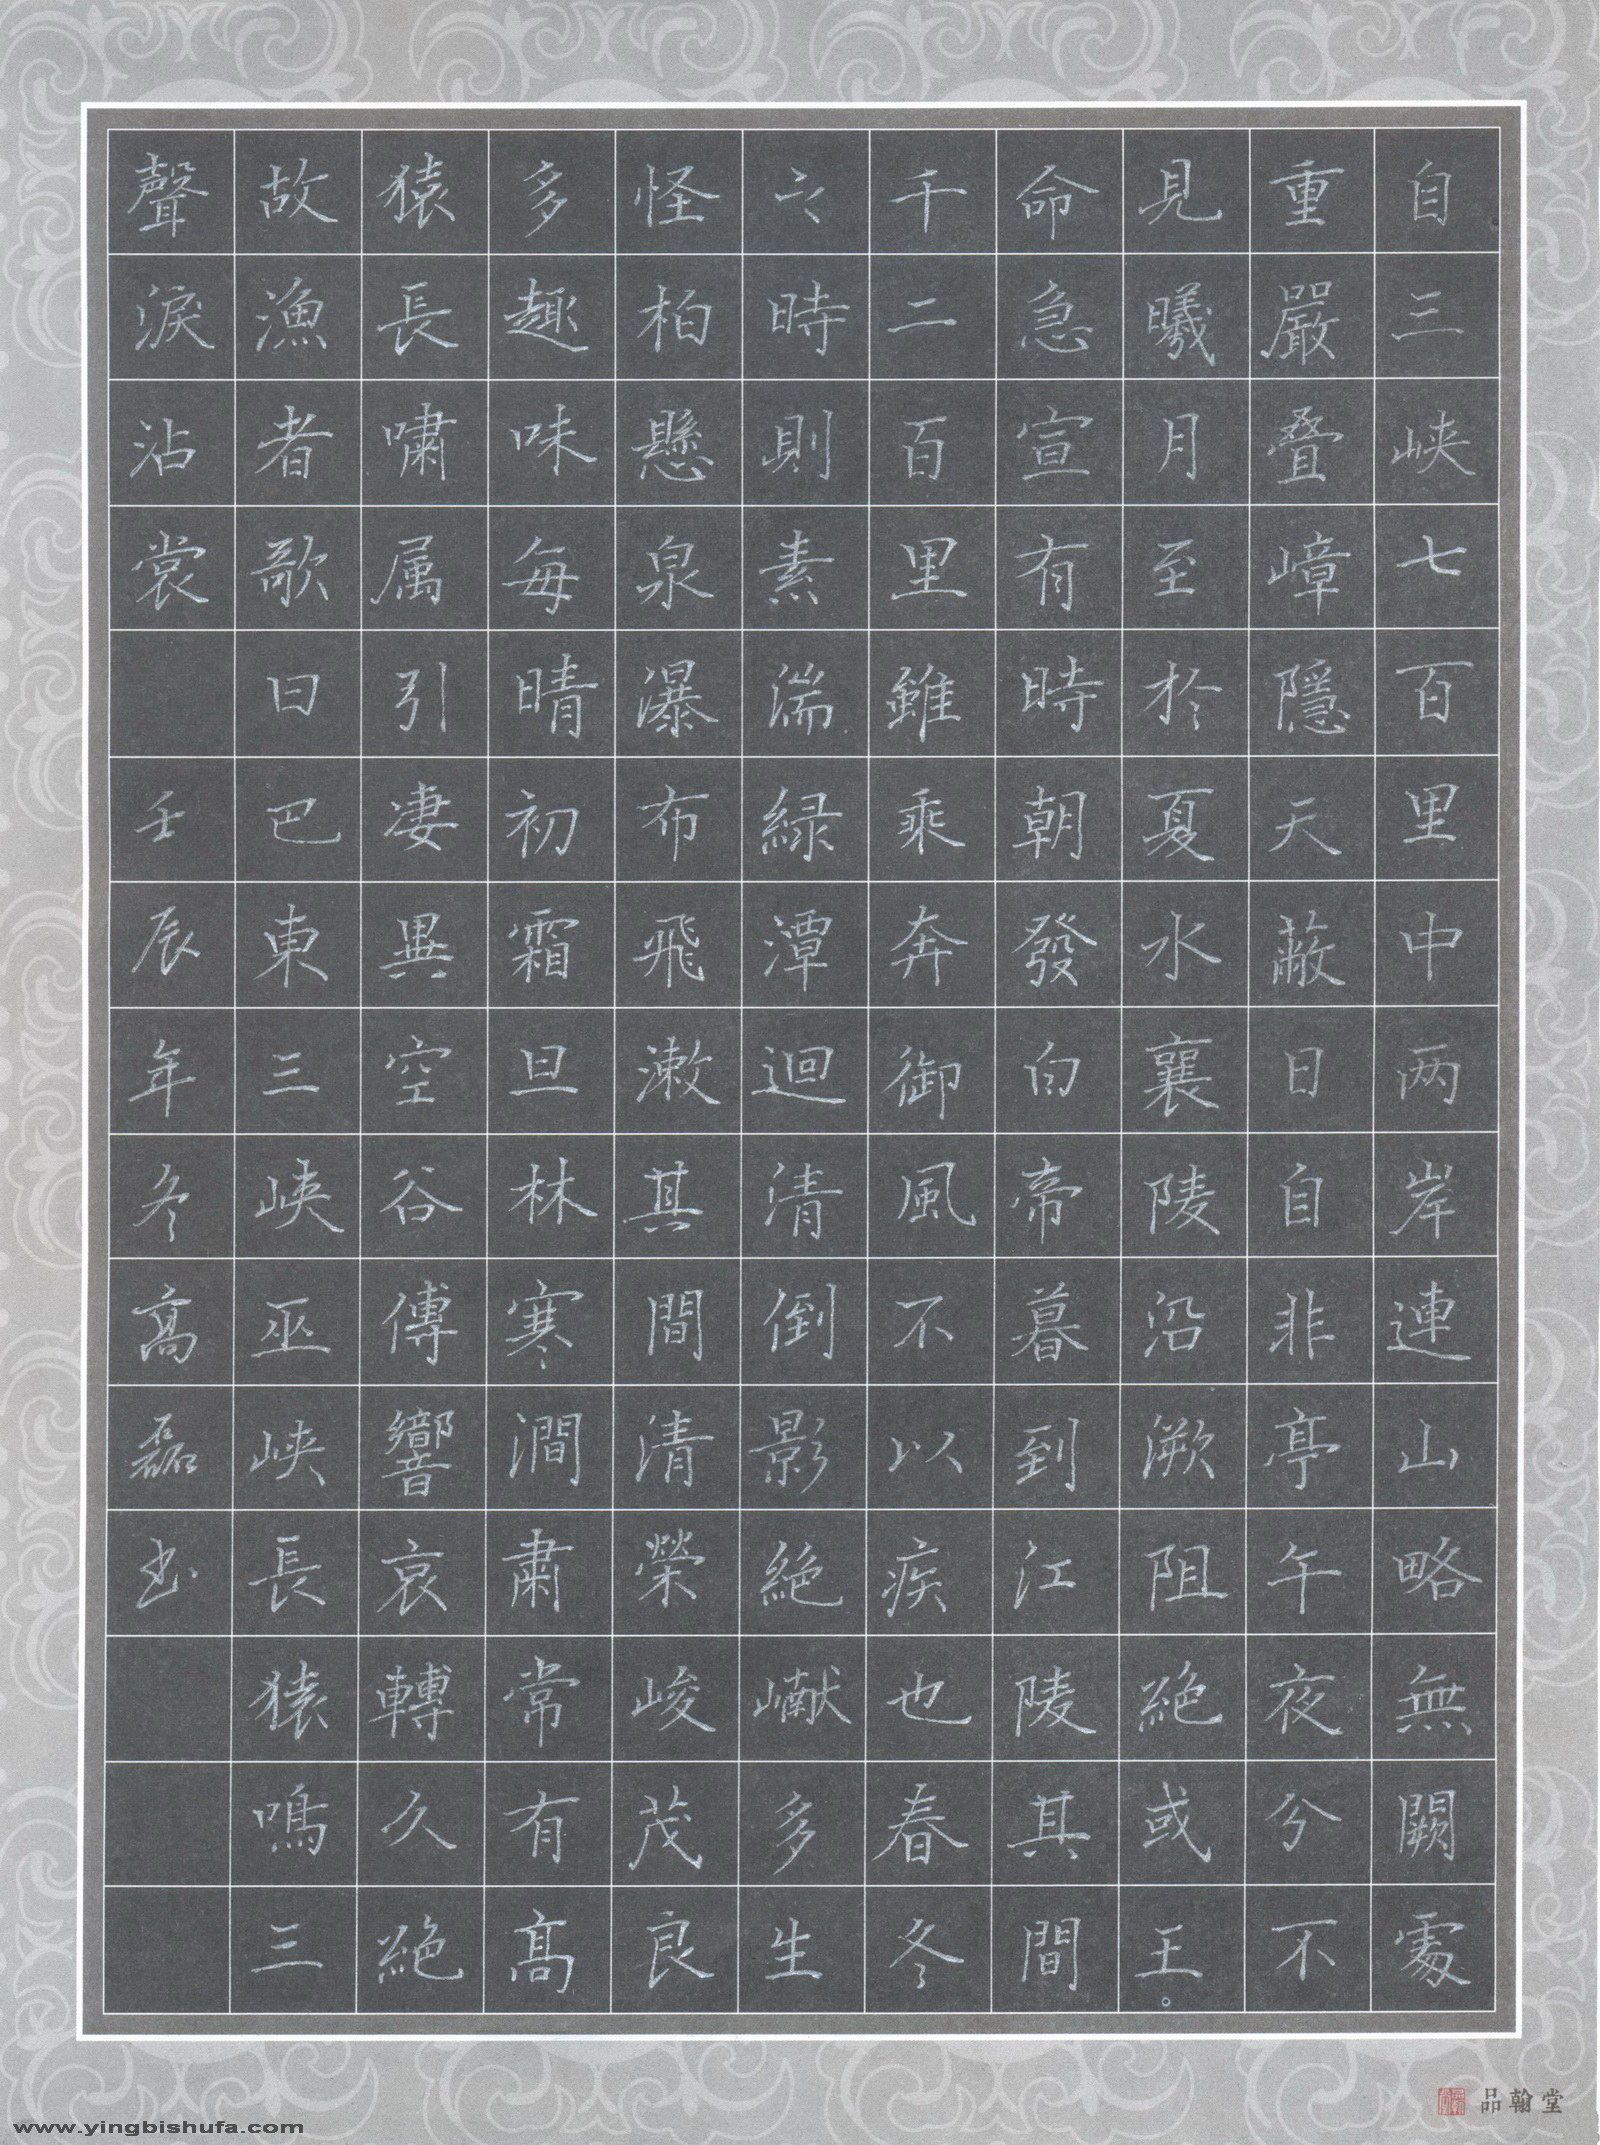 自三峡七百里中两岸連山略無闕處
重嚴叠嶂隱天蔽日自非亭午夜分不
見曦月至於夏水襄陵沿溯阻絶或王
命急宣有時朝發白帝暮到江陵其間
千二百里雖乘奔御風不以疾也春冬
之時則素湍緑潭迴清倒影絶巘多生
怪柏懸泉瀑布飛漱其間清榮峻茂良
多趣味每晴初霜旦林寒澗肅常有髙
猿長嘯属引凄異空谷傳響哀轉久絶
故漁者歌曰巴東三峡巫峡長猿鳴三
聲淚沾裳 壬辰年冬髙磊书
品翰堂
www.yingbishufa.com